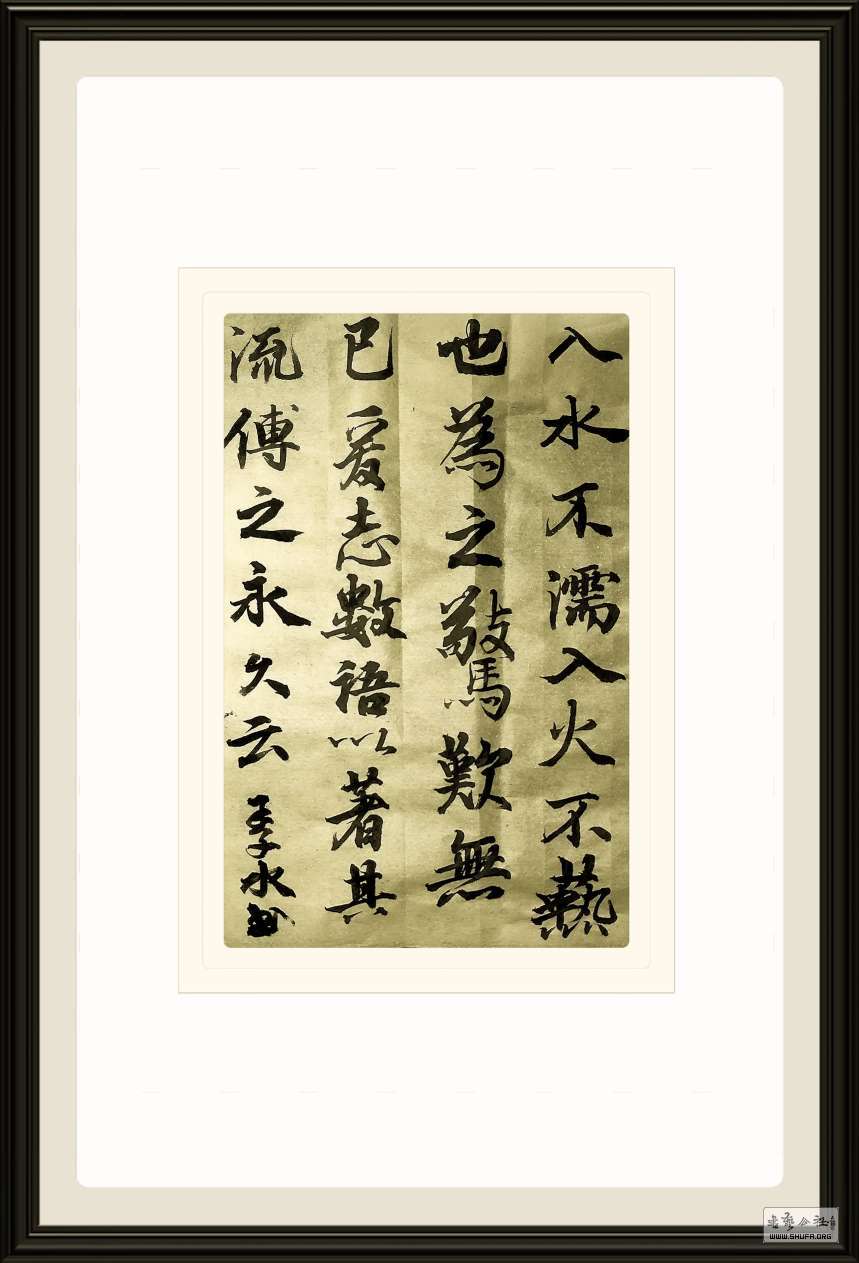 入水不濡入火不爇
也為之驚歎無
已爰志數語以著其
流傳之永久云
水
书艺公社
WWW.SHUFA.ORG